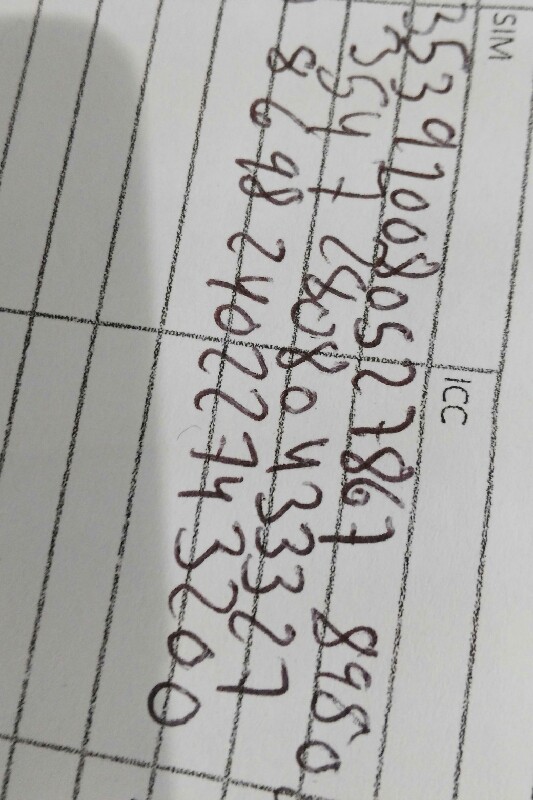 SIM ICC
353970080527867 8980
354728080433327
869824022743200